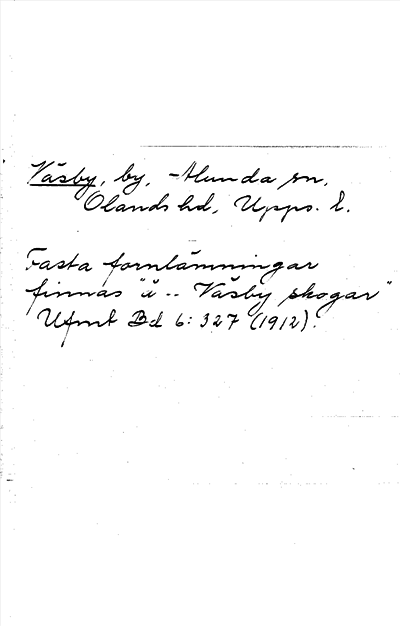 Väsby, by, Alunda sn,
Olands hd, Upps. l.
Fasta fornlämningar
finnas "å .. Väsby skogar"
Ufmt Bd 6: 327 (1912).